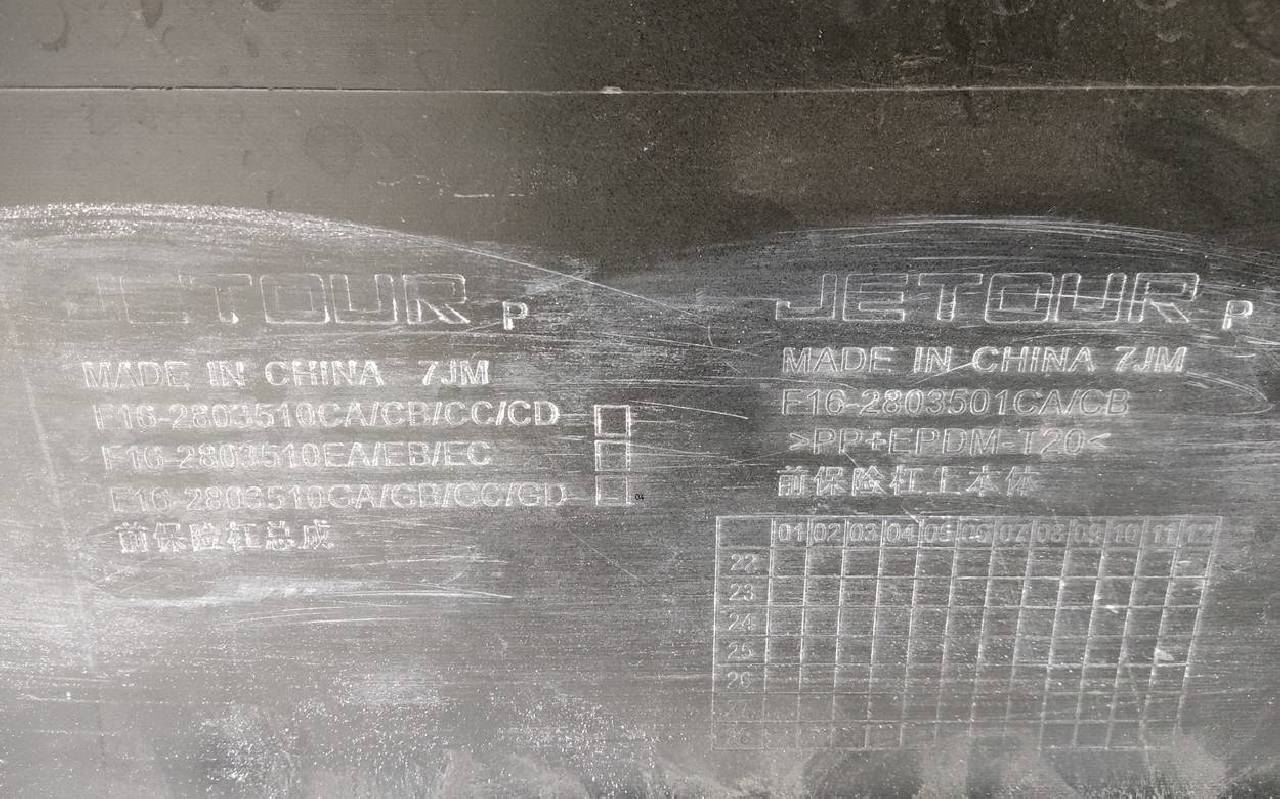 JETOUR P
MADE IN CHINA 7JM
F16-2803510CA/CB/CC/CD
F16-2803510EA/EB/EC
F16-2803510GA/GB/GC/GD
前保险杠总成
JETOUR P
MADE IN CHINA 7JM
F16-2803501CA/CB
>PP+EPDM-T20<
前保险杠上本体
01 02 03 04 05 06 07 08 09 10 11 12
22
23
24
25
26
27